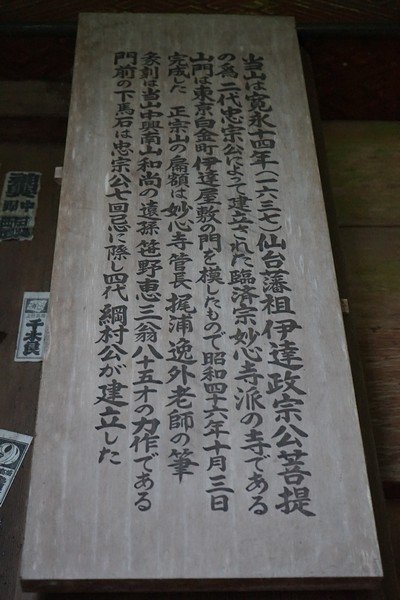 当山は寛永十四年(一六三七)仙台藩祖伊達政宗公菩提
の為二代忠宗公によって建立された臨済宗妙心寺派の寺である
山門は東京白金町伊達屋敷の門を模したもので昭和四十六年十月三日
完成した 正宗山の扁額は妙心寺管長梶浦逸外老師の筆
彖刻は当山中興南山和尚の遺孫笹野恵三翁八十五才の力作である
門前の下馬石は忠宗公七回忌に際し四代綱村公が建立した
千木良